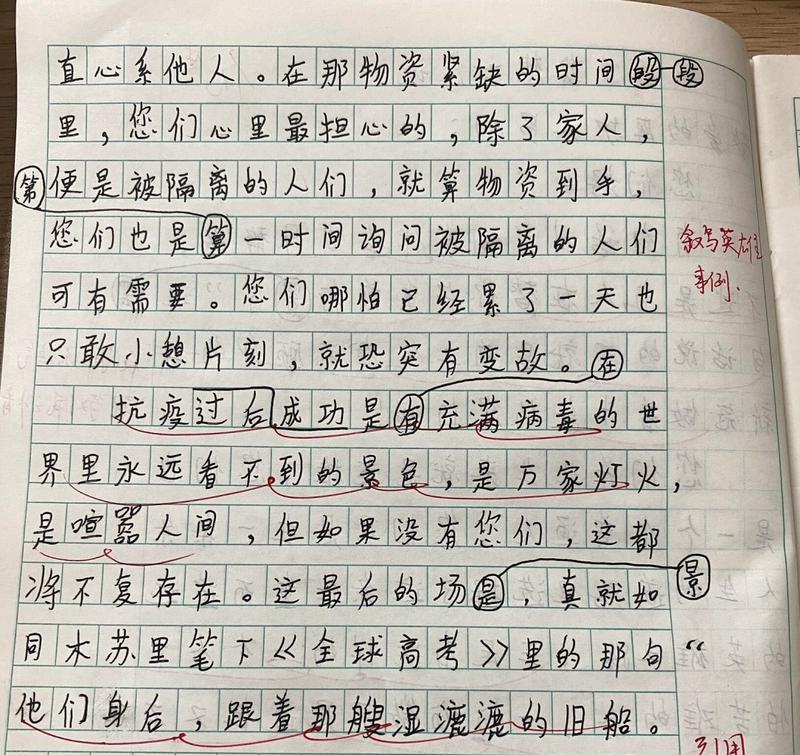 直心系他人。在那物资紧缺的时间段
里，您们心里最担心的，除了家人，
便是被隔离的人们，就算物资到手，
您们也是第一时间询问被隔离的人们
可有需要。您们哪怕已经累了一天也
只敢小憩片刻，就恐突有变故。
抗疫过后成功是在充满病毒的世
界里永远看不到的景色，是万家灯火，
是喧嚣人间，但如果没有您们，这都
将不复存在。这最后的场景，真就如
同木苏里笔下《全球高考》里的那句“
他们身后，跟着那艘湿漉漉的旧船。
叙写英雄
事例.
引用